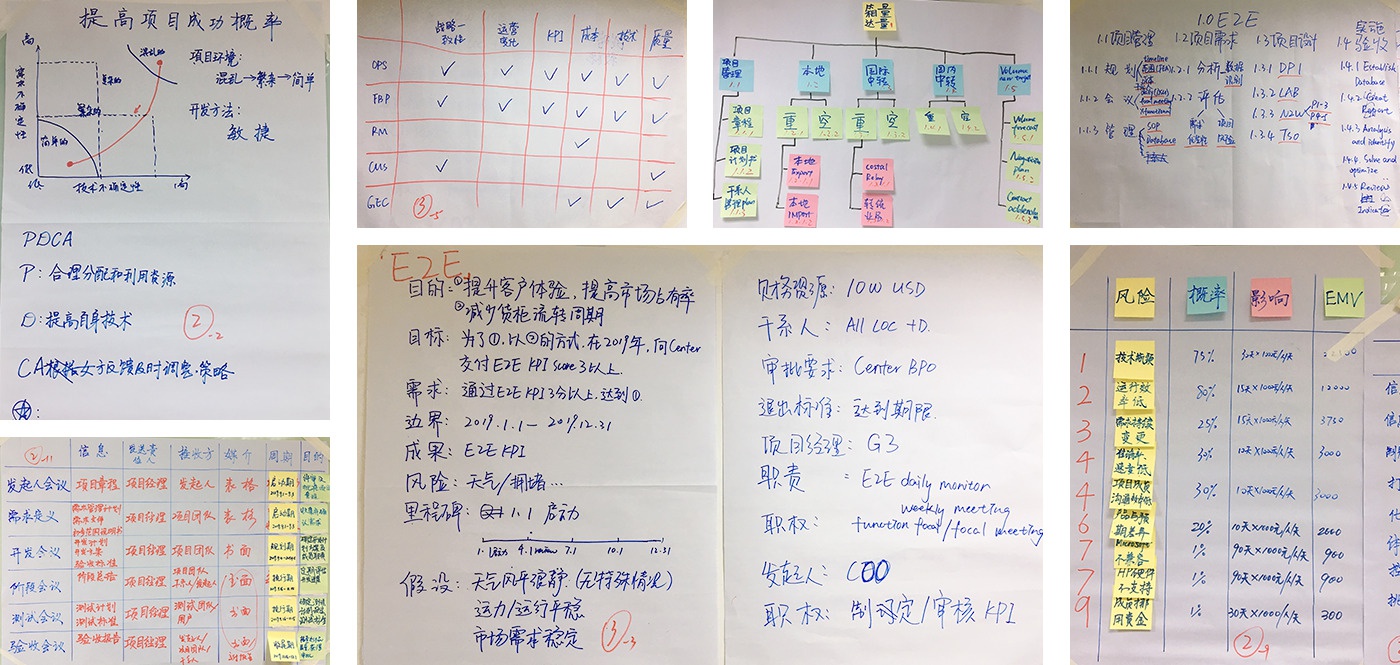 提高项目成功概率
高
需求不确定性
低
低
技术不确定性
高
混乱的
复杂的
简单的
项目环境:
混乱→繁杂→简单
开发方法:
敏捷
PDCA
P:合理分配和利用资源
D:提高自身技术
CA根据女子反馈及时调整策略
②-2
战略一致性 运营电化 KPI 成本 技术 质量
OPS ✓ ✓ ✓ ✓ ✓ ✓
FBP ✓ ✓ ✓ ✓ ✓ ✓
RM ✓
CUS ✓ ✓
GEC ✓ ✓ ✓
③-5
项目管理 1.1
本地
国际中转
国内中转
Volume new target 1.5
项目章程 1.1.1
项目计划书 1.1.2
干系人管理plan 1.1.3
重
空
重
空
本地Export
本地Import
costal Relay
Volume forecast 1.5.1
Negotiation plan 1.5.2
Contract addenda 1.5.3
1.0 E2E
1.1项目管理 1.2项目需求 1.3项目设计 1.4 实施验收
1.1.1 规划
timeline
1.1.2 会议
1.1.3 管理
SOP
Database
1.2.1 分析
数据
识别
1.2.2 评估
1.3.1 DP1
1.3.2 LAB
1.3.3 N2W
1.3.4 TSO
1.4.1 Establish Database
1.4.2 Great Report
1.4.3 Analysis and identify
1.4.4 Solve and optimize
1.4.5 Review
Indicator
E2E
目的:①提升客户体验,提高市场占有率
②减少货柜流转周期
目标:为了①,以②的方式,在2019年,向Center
交付E2E KPI score 3以上.
需求:通过E2E KPI 3分以上,达到①.
边界:2019.1.1—2019.12.31
成果:E2E KPI
风险:天气/拥堵…
里程碑: 1.1 启动
7.1 10.1 12.31
假设:天气风平浪静(无特殊情况)
运力/运行平稳
市场需求稳定
③-3
财务资源:10W USD
干系人:All LOC + D.
审批要求:Center BPO
退出标准:达到期限.
项目经理:G3
职责:E2E daily monitor
weekly meeting
职权:function focal/focal meeting
发起人:COO
职权:制规定/审核KPI
②-11
信息 发送责任人 接收方 媒介 周期 目的
发起人会议 项目章程 项目经理 发起人 表格 启动期
需求定义 需求管理计划 需求文件 项目经理 项目团队 表格 启动期
开发会议 开发计划 开发方案 验收标准 项目经理 项目团队 书面 规划期
阶段会议 阶段总结 项目经理 项目团队 干系人/发起人 书面 执行期
测试会议 测试计划 测试标准 项目经理 测试团队/用户 书面 执行期
验收会议 验收报告 项目经理 发起人/项目团队/干系人 书面/ 收尾期
风险 概率 影响 EMV
1 技术瓶颈 75% 30天×1000元/人/天
2 运行效率低 80% 15天×1000元/人/天 12000
3 需求持续变更 25% 15天×1000元/人/天 3750
4 30% 10天×1000元/人/天 3000
4 项目成员沟通 30% 10天×1000元/人/天 3000
6 产品与预期差异 20% 10天×1000元/人/天 2000
7 Microsoft不兼容 1% 90天×1000元/人/天 900
7 HP硬件不支持 1% 90天×1000元/人/天 900
9 成员挪用资金 1% 30天×1000/人/天 300
②-9